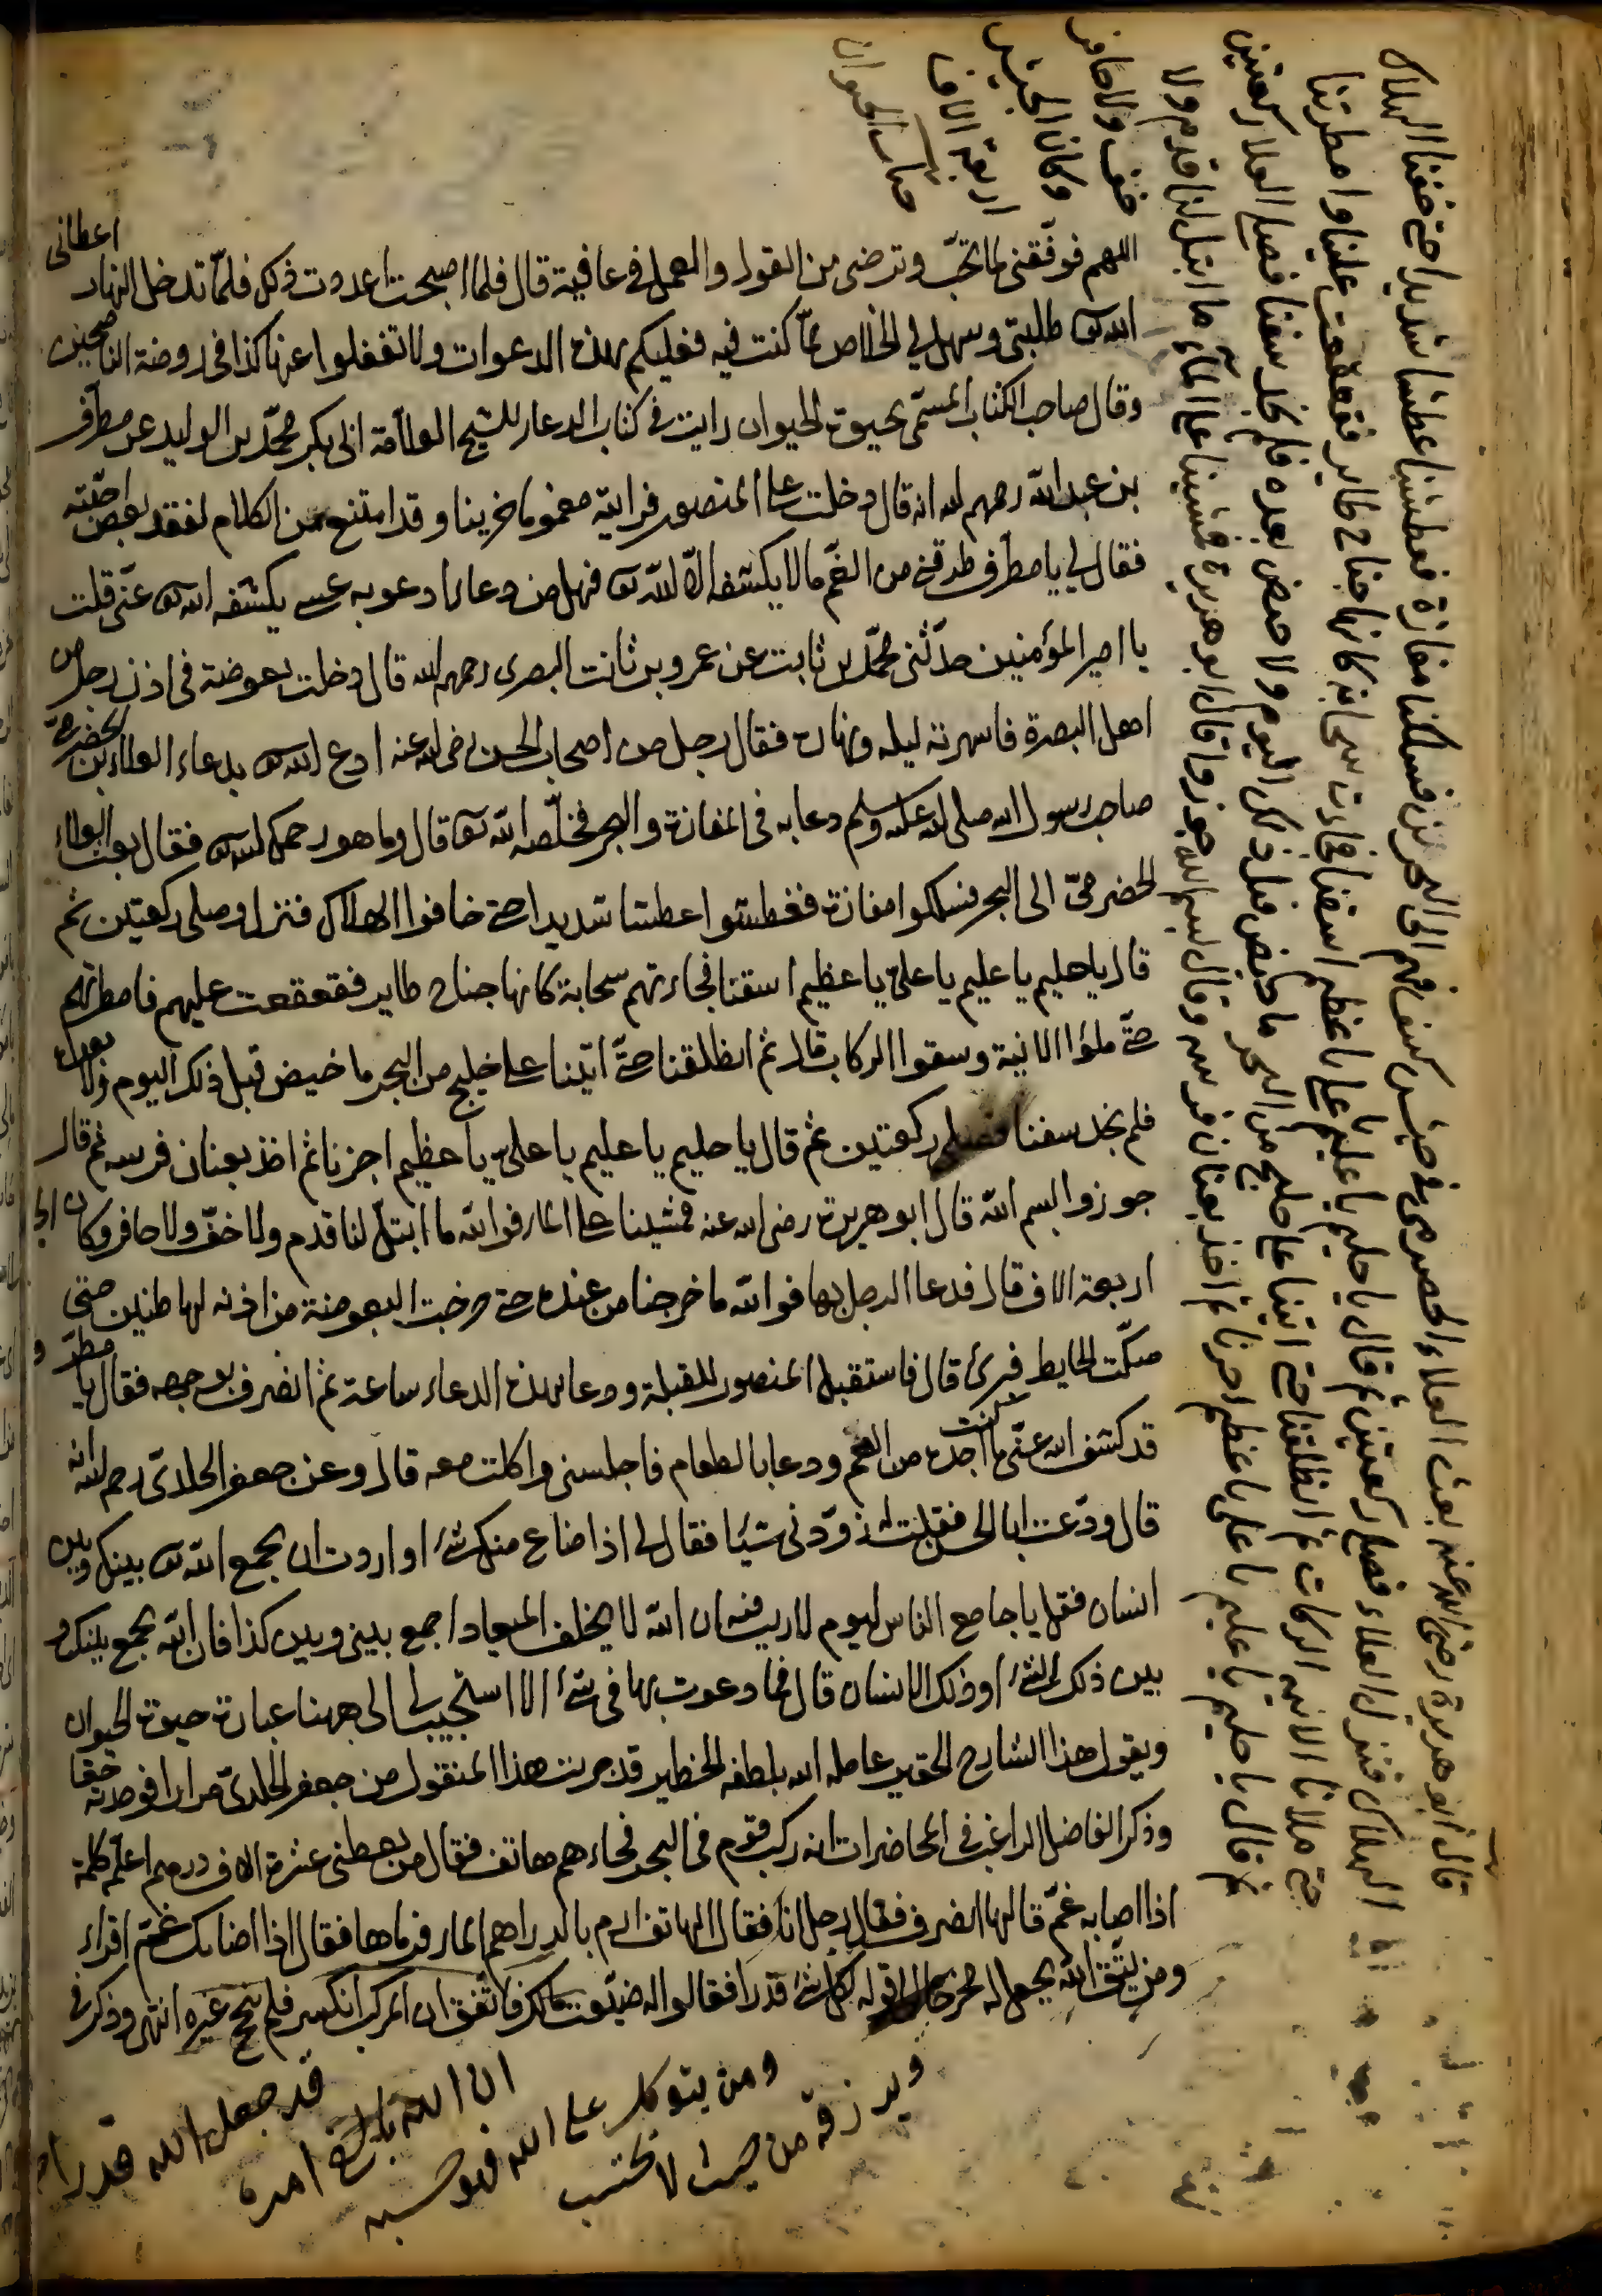 اللهم فوفّقنى لما تحبّ وترضى من القول والعمل فى عافية قال فلما اصبحت اعدوت ذلك فلمّا تدخل النهار اعطانى
الله تعالى طلبتى وسهل لى الخلاص ممّا كنت فيه فعليكم بهذه الدعوات ولا تغفلوا عنها كذا فى روضة الناصحين
وقال صاحب الكتاب المسمّى بحيوة الحيوان رايت فى كتاب الدعاء للشيخ العلاّمة ابى بكر محمّد بن الوليد عن مطرّف
بن عبد الله رحمهم الله انه قال دخلت على المنصور فرايته مغموما حزينا وقد امتنع من الكلام لفقد بعض احبّته
فقال لى يا مطرّف طرقنى من الغمّ مالا يكشفه الا الله تعالى فهل من دعاء ادعو به عسى يكشفه الله تعالى عنّى قلت
يا امير المؤمنين حدّثنى محمّد بن ثابت عن عمرو بن ثابت البصرى رحمهم الله قال دخلت بعوضة فى اذن رجل من
اهل البصرة فاسهرته ليله ونهاره فقال رجل من اصحاب الحسن رضى الله عنه ادع الله تعالى بدعاء العلاء بن الحضرمىّ
صاحب رسول الله صلى الله عليه وسلم دعا به فى المفازة والبحر فخلّصه الله تعالى قال وما هو رحمك الله تعالى فقال بعث العلاء
الحضرمىّ الى البحر فسلكوا مفازة فعطشوا عطشا شديدا حتى خافوا الهلاك فنزل وصلى ركعتين ثم
قال يا حليم يا عليم يا علىّ يا عظيم اسقنا فجاءتهم سحابة كانها جناح طاير فقعقعت عليهم فامطرتهم
حتّى ملؤا الانية وسقوا الركاب قال ثم انطلقنا حتّى اتينا على خليج من البحر ما خيض قبل ذلك اليوم ولا بعده
فلم نجد سفنا فصلى ركعتين ثم قال يا حليم يا عليم يا علىّ يا عظيم اجزنا ثم اخذ بعنان فرسه ثم قال
جوزوا بسم الله قال ابو هريرة رضى الله عنه فمشينا على الماء فوالله ما ابتلّ لنا قدم ولا خفّ ولا حافر وكان
اربعة الاف قال فدعا الرجل بها فوالله ما خرجنا من عنده حتى خرجت البعوضة من اذنه لها طنين حتى
صكّت الحايط فبرئ قال فاستقبل المنصور القبلة ودعا بهذه الدعاء ساعة ثم انصرف بوجهه فقال يا مطرّف
قد كشف الله عنّى ما كنت اجده من الغم ودعا بالطعام فاجلسنى واكلت معه قال وعن جعفر الخلدى رحمه الله انه
قال ودّعت ابا الحسن فقلت له زوّدنى شيئا فقال لى اذا ضاع منك شئ او اردت ان يجمع الله تعالى بينك وبين
انسان فقل يا جامع الناس ليوم لا ريب فيه ان الله لا يخلف الميعاد اجمع بينى وبين كذا فان الله يجمع بينك و
بين ذلك الشئ او ذلك الانسان قال فما دعوت بها فى شئ الا استجيب لى الى ههنا عبارة حيوة الحيوان
ويقول هذا الشارح الحقير عامله الله بلطفه الخطير قد جربت هذا المنقول من جعفر الخلدىّ مرارا فوجدته حقا
وذكر الفاضل الراغب فى المحاضرات انه ركب قوم فى البحر فجاءهم هاتف فقال من يعطنى عشرة الاف درهم اعلّمه كلمة
اذا اصابه غمّ قالها انصرف فقال رجل انا فقال الهاتف ارم بالدراهم الماء فرماها فقال اذا اصابك غمّ اقراء
ومن يتّق الله يجعل له مخرجا الى قوله لكل شئ قدرا فقالوا له ضيّعت مالك فاتّفق ان المركب انكسر فلم ينج غيره انتهى وذكر فى
ويرزقه من حيث لا يحتسب
ومن يتوكل على الله فهو حسبه
ان الله بالغ امره
قد جعل الله قدرا
قال ابو هريرة رضى الله عنه بعث العلاء الحضرمى فى جيش كنت فيهم الى البحرين فسلكنا مفازة فعطشنا عطشا شديدا حتى خفنا الهلاك
الهلاك فنزل العلاء فصلى ركعتين ثم قال يا حليم يا عليم يا على يا عظيم اسقنا فجاءت سحابة كانها جناح طاير فقعقعت علينا وامطرتنا
حتى ملأنا الانية الركاب ثم انطلقنا حتى اتينا على خليج من البحر ما خيض قبل ذلك اليوم ولا خيض بعده فلم نجد سفنا فصلى العلا ركعتين
ثم قال يا حليم يا عليم يا على يا عظيم اجزنا ثم اخذ بعنان فرسه وقال بسم الله جوزوا قال ابو هريرة فمشينا على الماء ما ابتل لنا قدم ولا
خف ولا حافر
وكان الجيش
اربعة الاف
حيات الحيوان